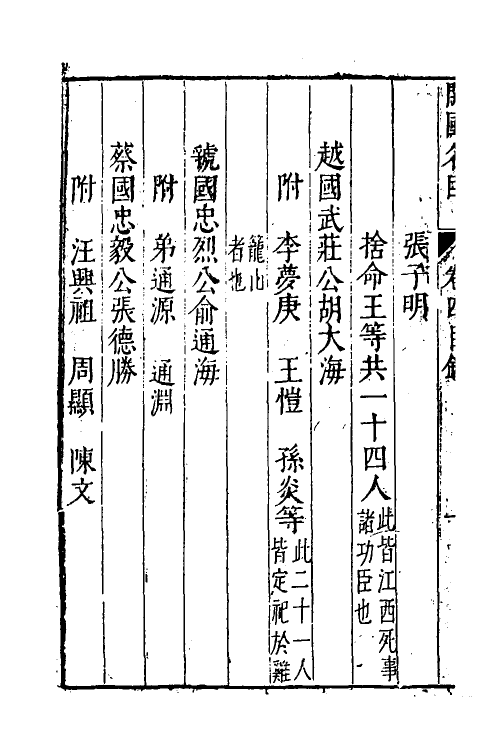 開國名 卷四目錄
張子明
捨命王等共一十四人 此皆江西死事
諸功臣也
越國武莊公胡大海
附 李夢庚 王愷 孫炎等 此二十一人
皆定祀於雞
籠山
者也
虢國忠烈公俞通海
附 弟通源 通淵
蔡國忠毅公張德勝
附 汪興祖 周顯 陳文